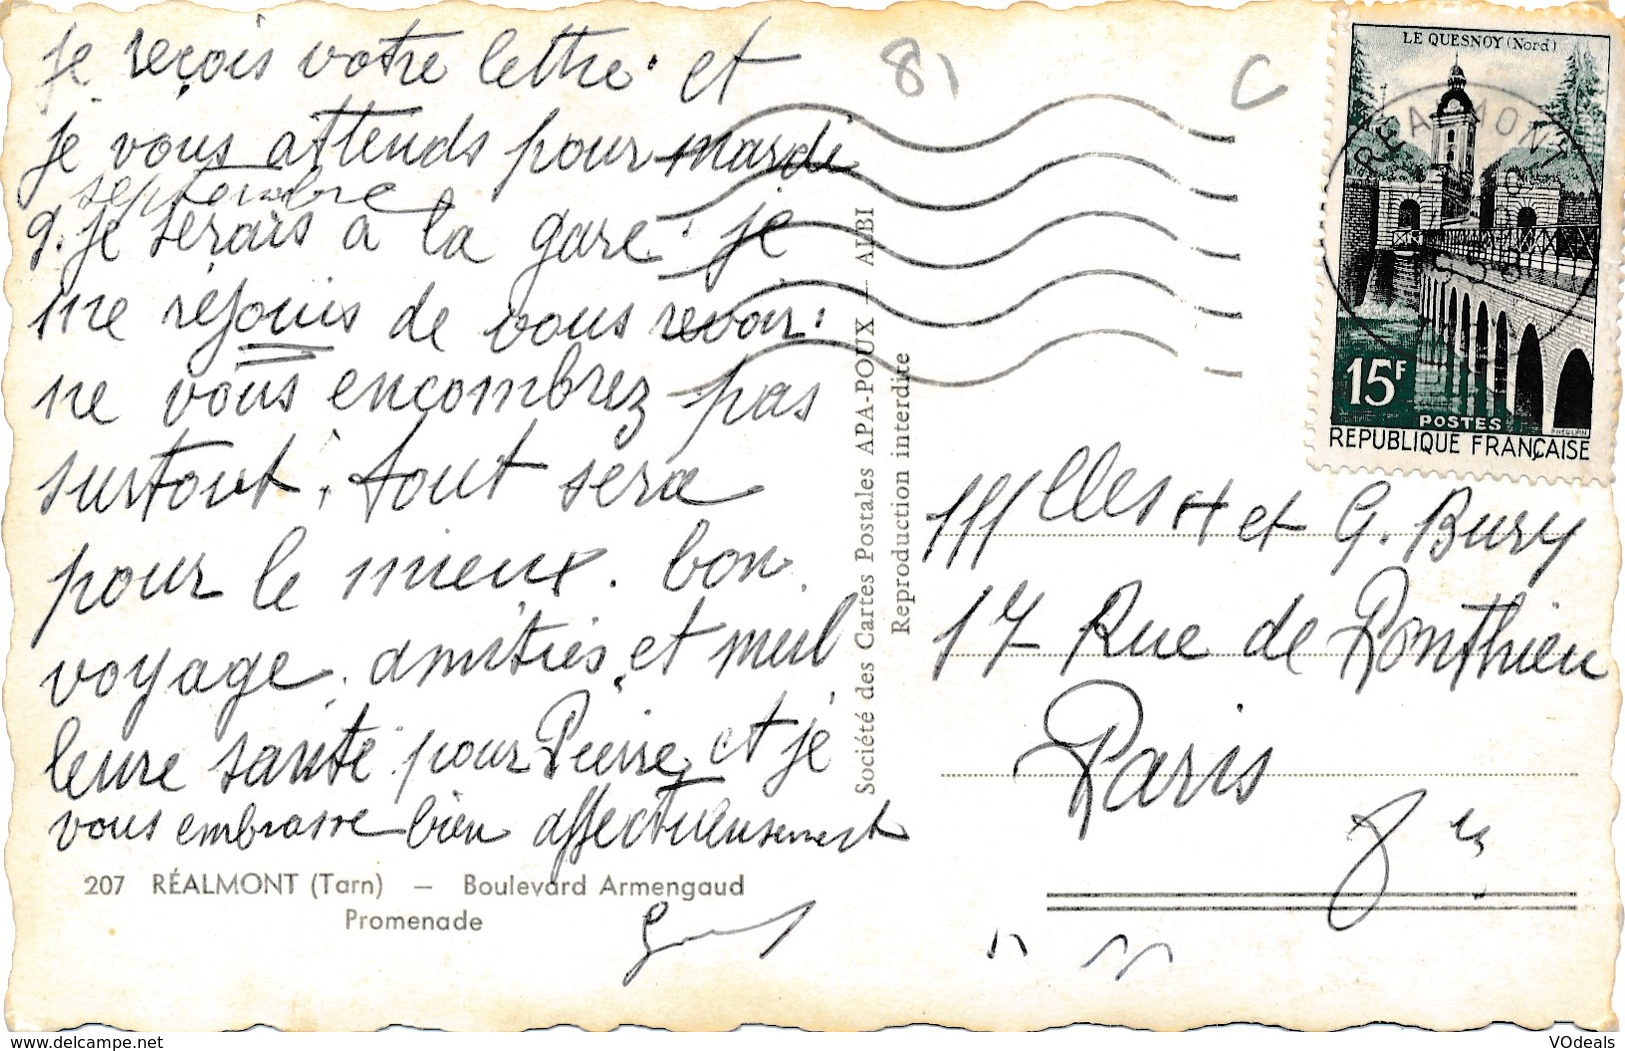 je reçois votre lettre. et
je vous attends pour mardi
septembre
9. je serais à la gare. je
me réjouis de vous revoir.
ne vous encombrez pas
surtout, tout sera
pour le mieux. bon
voyage. amitiés, et meil
leure santé pour Pierre, et je
vous embrasse bien affectueusement
207 RÉALMONT (Tarn) — Boulevard Armengaud
Promenade
Société des Cartes Postales APA-POUX — ALBI
Reproduction interdite
81
C
LE QUESNOY (Nord)
REALMONT
15F
POSTES
PHEULPIN
REPUBLIQUE FRANÇAISE
Mlles H et G. Bury
17 Rue de Ponthieu
Paris
www.delcampe.net
VOdeals